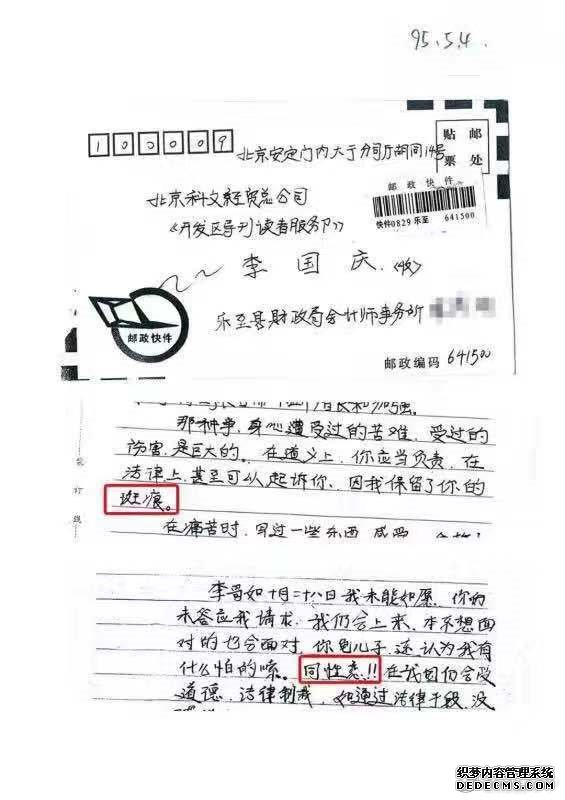 95.5.4.
100009
贴 邮
票 处
北京安定门内大方家胡同14号
北京科文经贸总公司
邮政快件
快件0829 乐至 641500
《开发区导刊读者服务部》
李 国 庆 (收)
邮政快件
乐至县财政局会计师事务所
邮政编码 641500
那种事,身心遭受过的苦难,受过的
伤害,是巨大的。在道义上,你应当负责,在
法律上,甚至可以起诉你,因我保留了你的
斑痕。
装 订 线
在痛苦时,写过一些东西
李哥如十月二十八日我未能如愿,你如
未答应我请求,我们会上来,本不想面
对的也会面对,你龟儿子,还认为我有
什么怕的嗦。同性恋!!在我国仍会受
道德,法律制裁,如通过法律手段,没
织梦内容管理系统
DEDECMS.COM